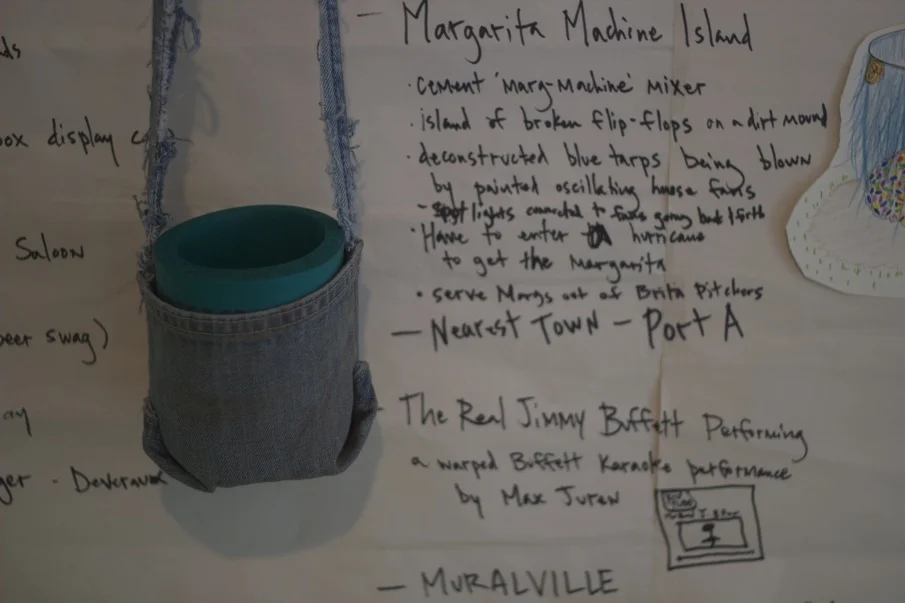 ds
box display
Saloon
beer swag)
ay
ger - Devereux
— Margarita Machine Island
· cement 'marg-machine' mixer
· island of broken flip-flops on a dirt mound
· deconstructed blue tarps being blown
by painted oscillating house fans
- spot lights connected to fans going back & forth
· Have to enter a hurricane
to get the margarita
· serve Margs out of Brita Pitchers
— Nearest Town - Port A
- The Real Jimmy Buffett Performing
a warped Buffett Karaoke performance
by Max Juren
— MURALVILLE